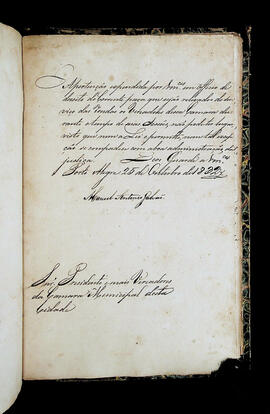 A pertenção expendida por Vm.ces em officio de
dezoito do corrente para que sejão relevados do ser-
viço das Rondas os Vereadores dessa Camara du-
rante o tempo de suas Sessões, não pode ter lugar
visto que nem a Lei o permitte, nem tal isenção
se compadece com a boa administração da
justiça. Deos Guarde a Vm.ces
Porto Alegre 25 de Outubro de 1832
Manuel Antonio Galvão
Snr. Presidente e mais Vereadores
da Camara Municipal desta
Cidade